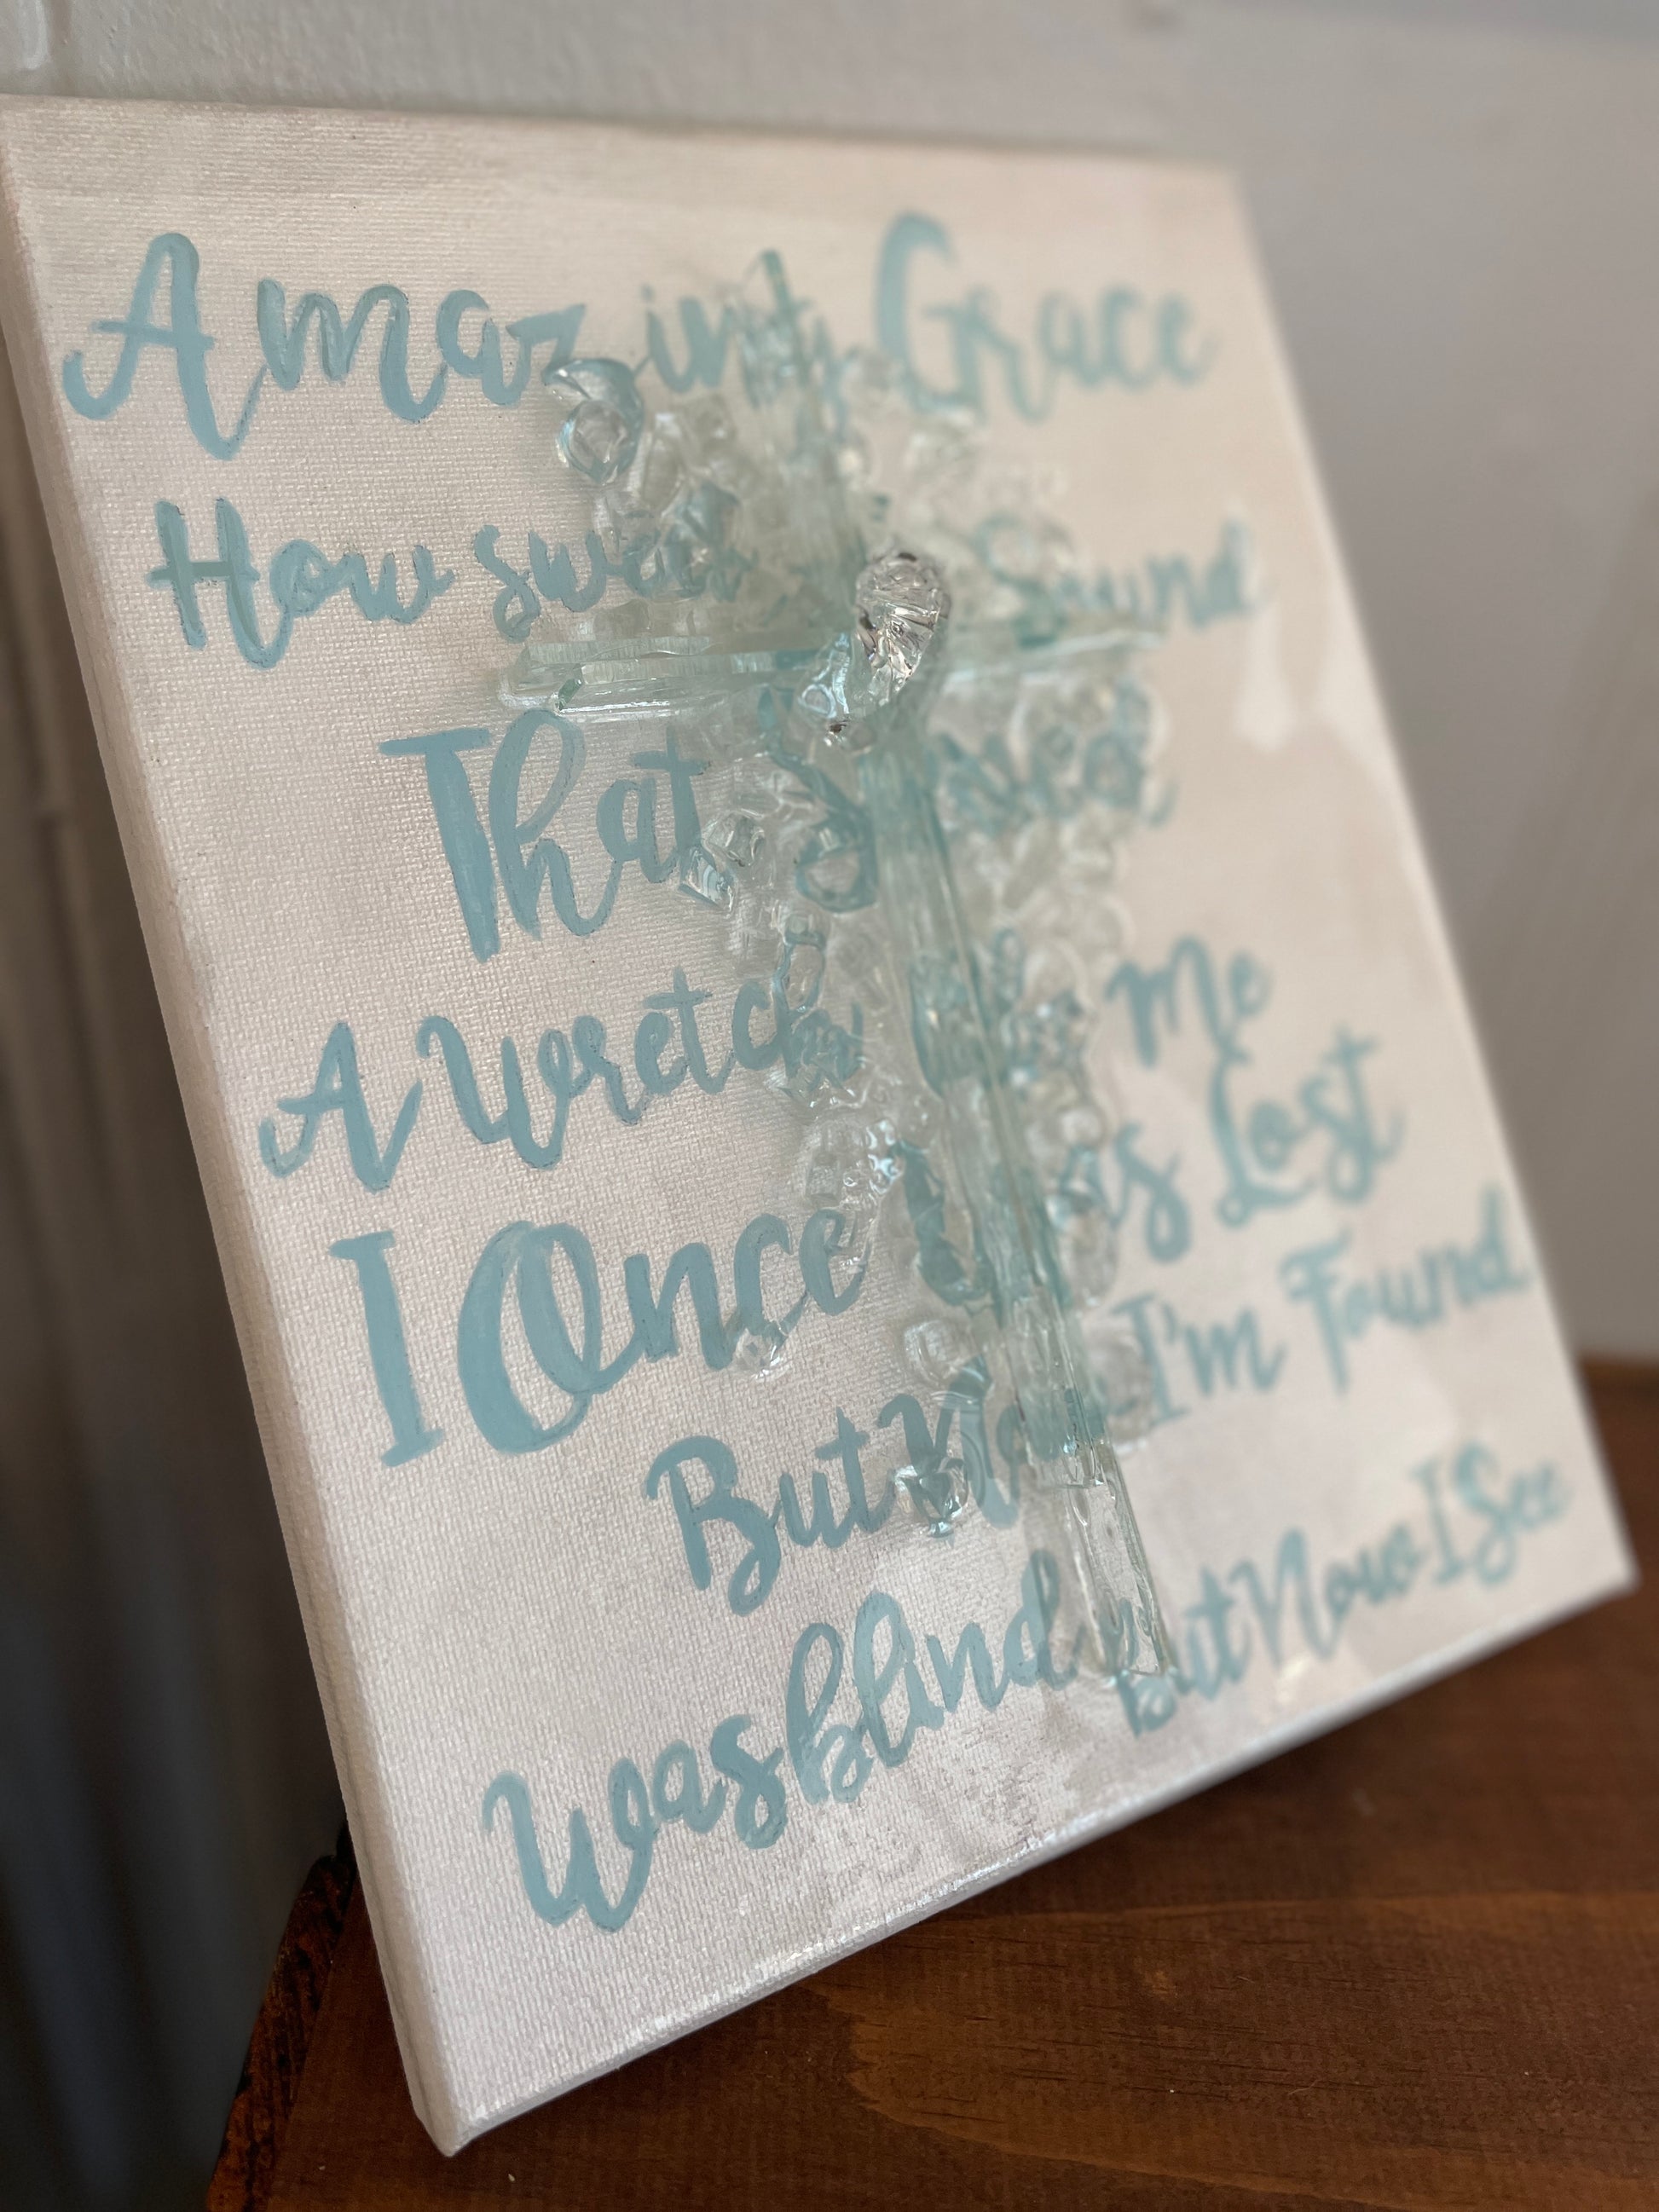 Amazing Grace
How sweet Sound
That Saved
A Wretch Like Me
I Once Was Lost
But Now I'm Found
Was blind but Now I See